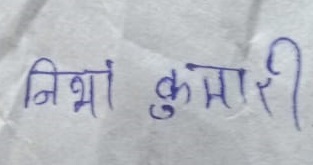 निभां कुमारी